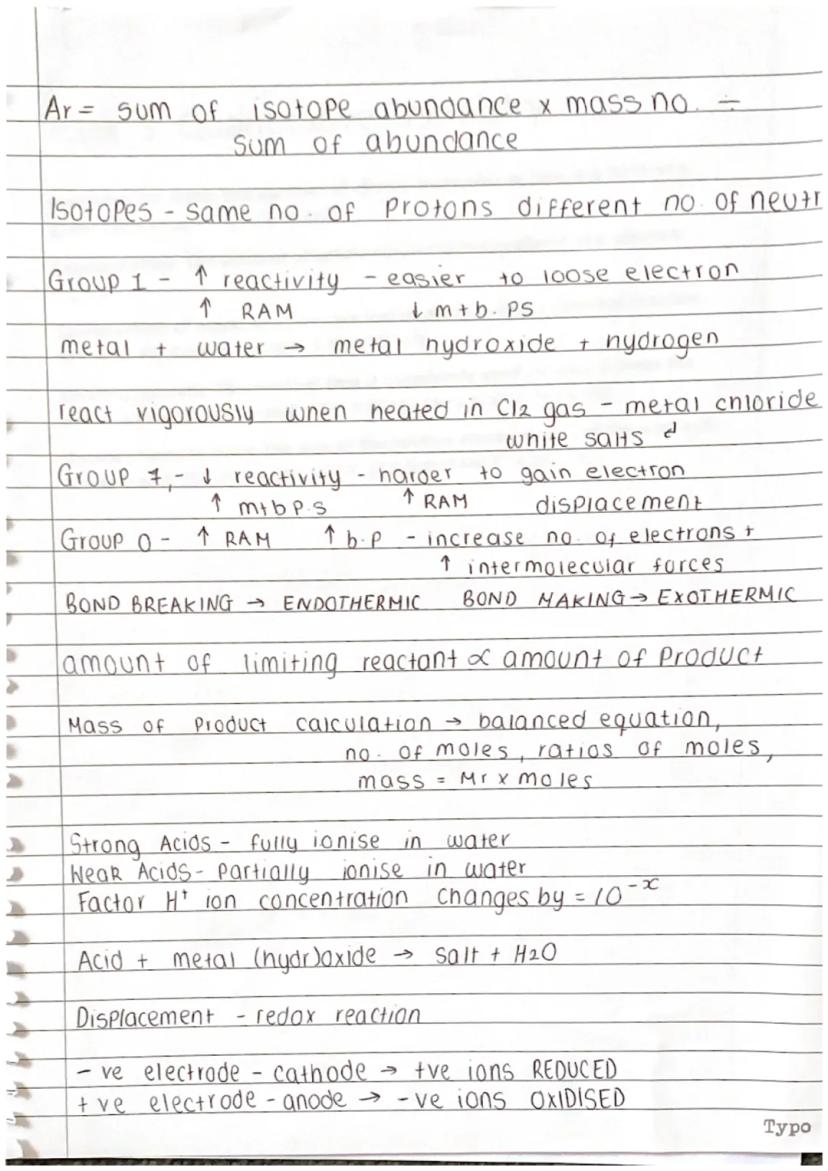 Ar = sum of isotope abundance x mass no. ÷
sum of abundance
Isotopes - same no. of protons different no. of neutr
Group 1 - ↑ reactivity - easier to loose electron
↑ RAM ↓ m+b.ps
metal + water → metal hydroxide + hydrogen
react vigorously when heated in Cl2 gas - metal chloride
white salts
Group 7 - ↓ reactivity - harder to gain electron
↑ m+b p.s ↑ RAM displacement
Group 0 - ↑ RAM ↑ b.p - increase no. of electrons +
↑ intermolecular forces
BOND BREAKING → ENDOTHERMIC BOND MAKING → EXOTHERMIC
amount of limiting reactant ∝ amount of product
Mass of product calculation → balanced equation,
no. of moles, ratios of moles,
mass = Mr x moles
Strong Acids - fully ionise in water
Weak Acids - partially ionise in water
Factor H⁺ ion concentration changes by = 10⁻ˣ
Acid + metal (hydr)oxide → salt + H2O
Displacement - redox reaction
- ve electrode - cathode → +ve ions REDUCED
+ ve electrode - anode → -ve ions OXIDISED
Typo